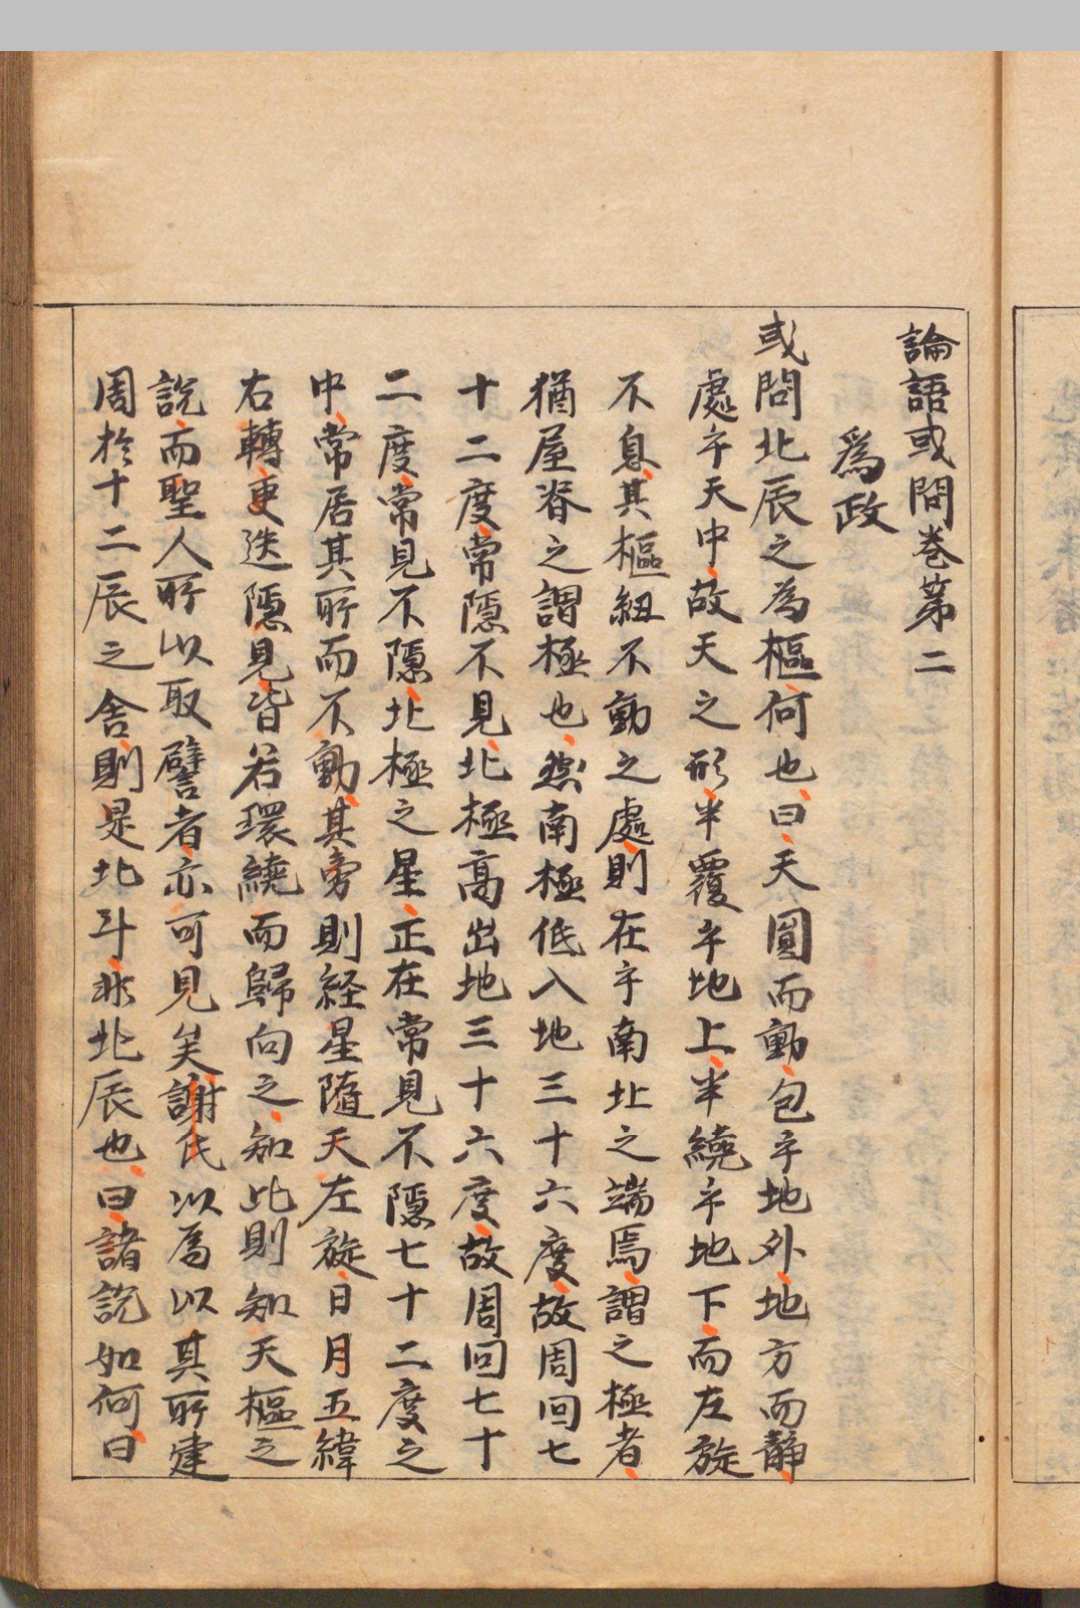 論語或問卷第二
爲政
或問北辰之為樞何也曰天圓而動包乎地外地方而靜
處乎天中故天之形半覆乎地上半繞乎地下而左旋
不息其樞紐不動之處則在乎南北之端焉謂之極者
猶屋脊之謂極也然南極低入地三十六度故周回七
十二度常隱不見北極高出地三十六度故周回七十
二度常見不隱北極之星正在常見不隱七十二度之
中常居其所而不動其旁則経星隨天左旋日月五緯
右轉更迭隱見皆若環繞而歸向之知此則知天樞之
說而聖人所以取譬者亦可見矣謝氏以爲以其所建
周於十二辰之舍則是北斗非北辰也曰諸說如何曰